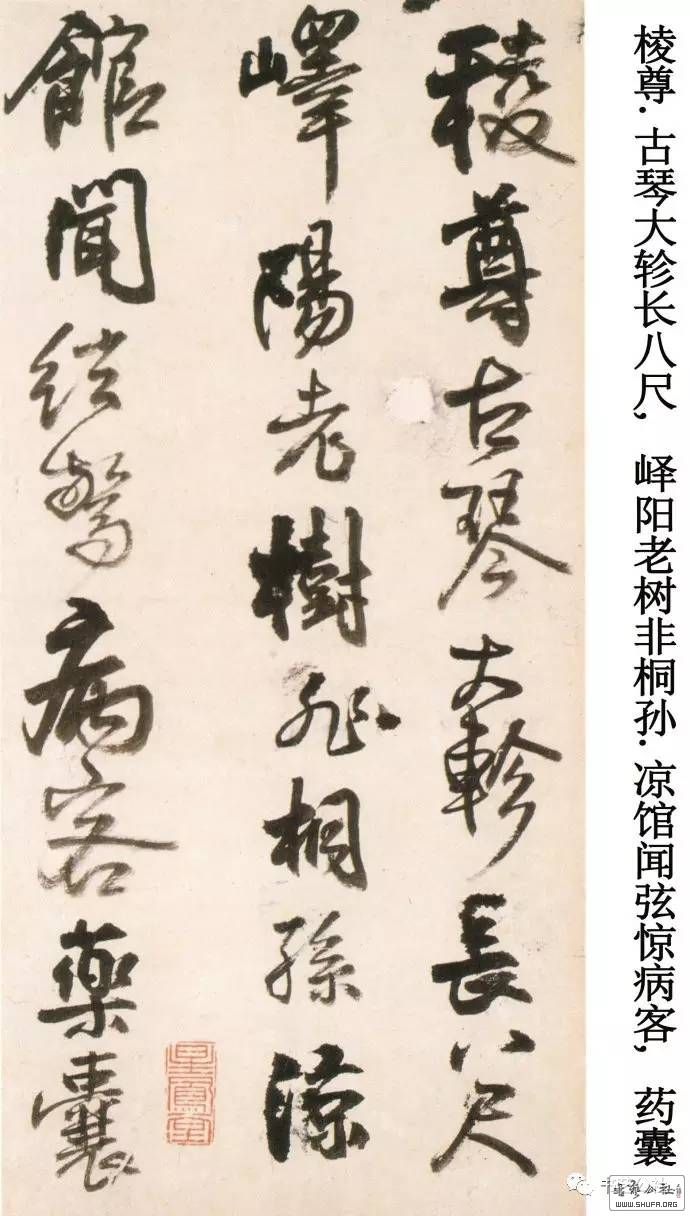 棱尊. 古琴大轸长八尺, 峄阳老树非桐孙. 凉馆闻弦惊病客, 药囊
稜尊古琴大軫長八尺
嶧陽老樹非桐孫涼
館聞絃驚病客藥囊
WWW.SHUFA.ORG